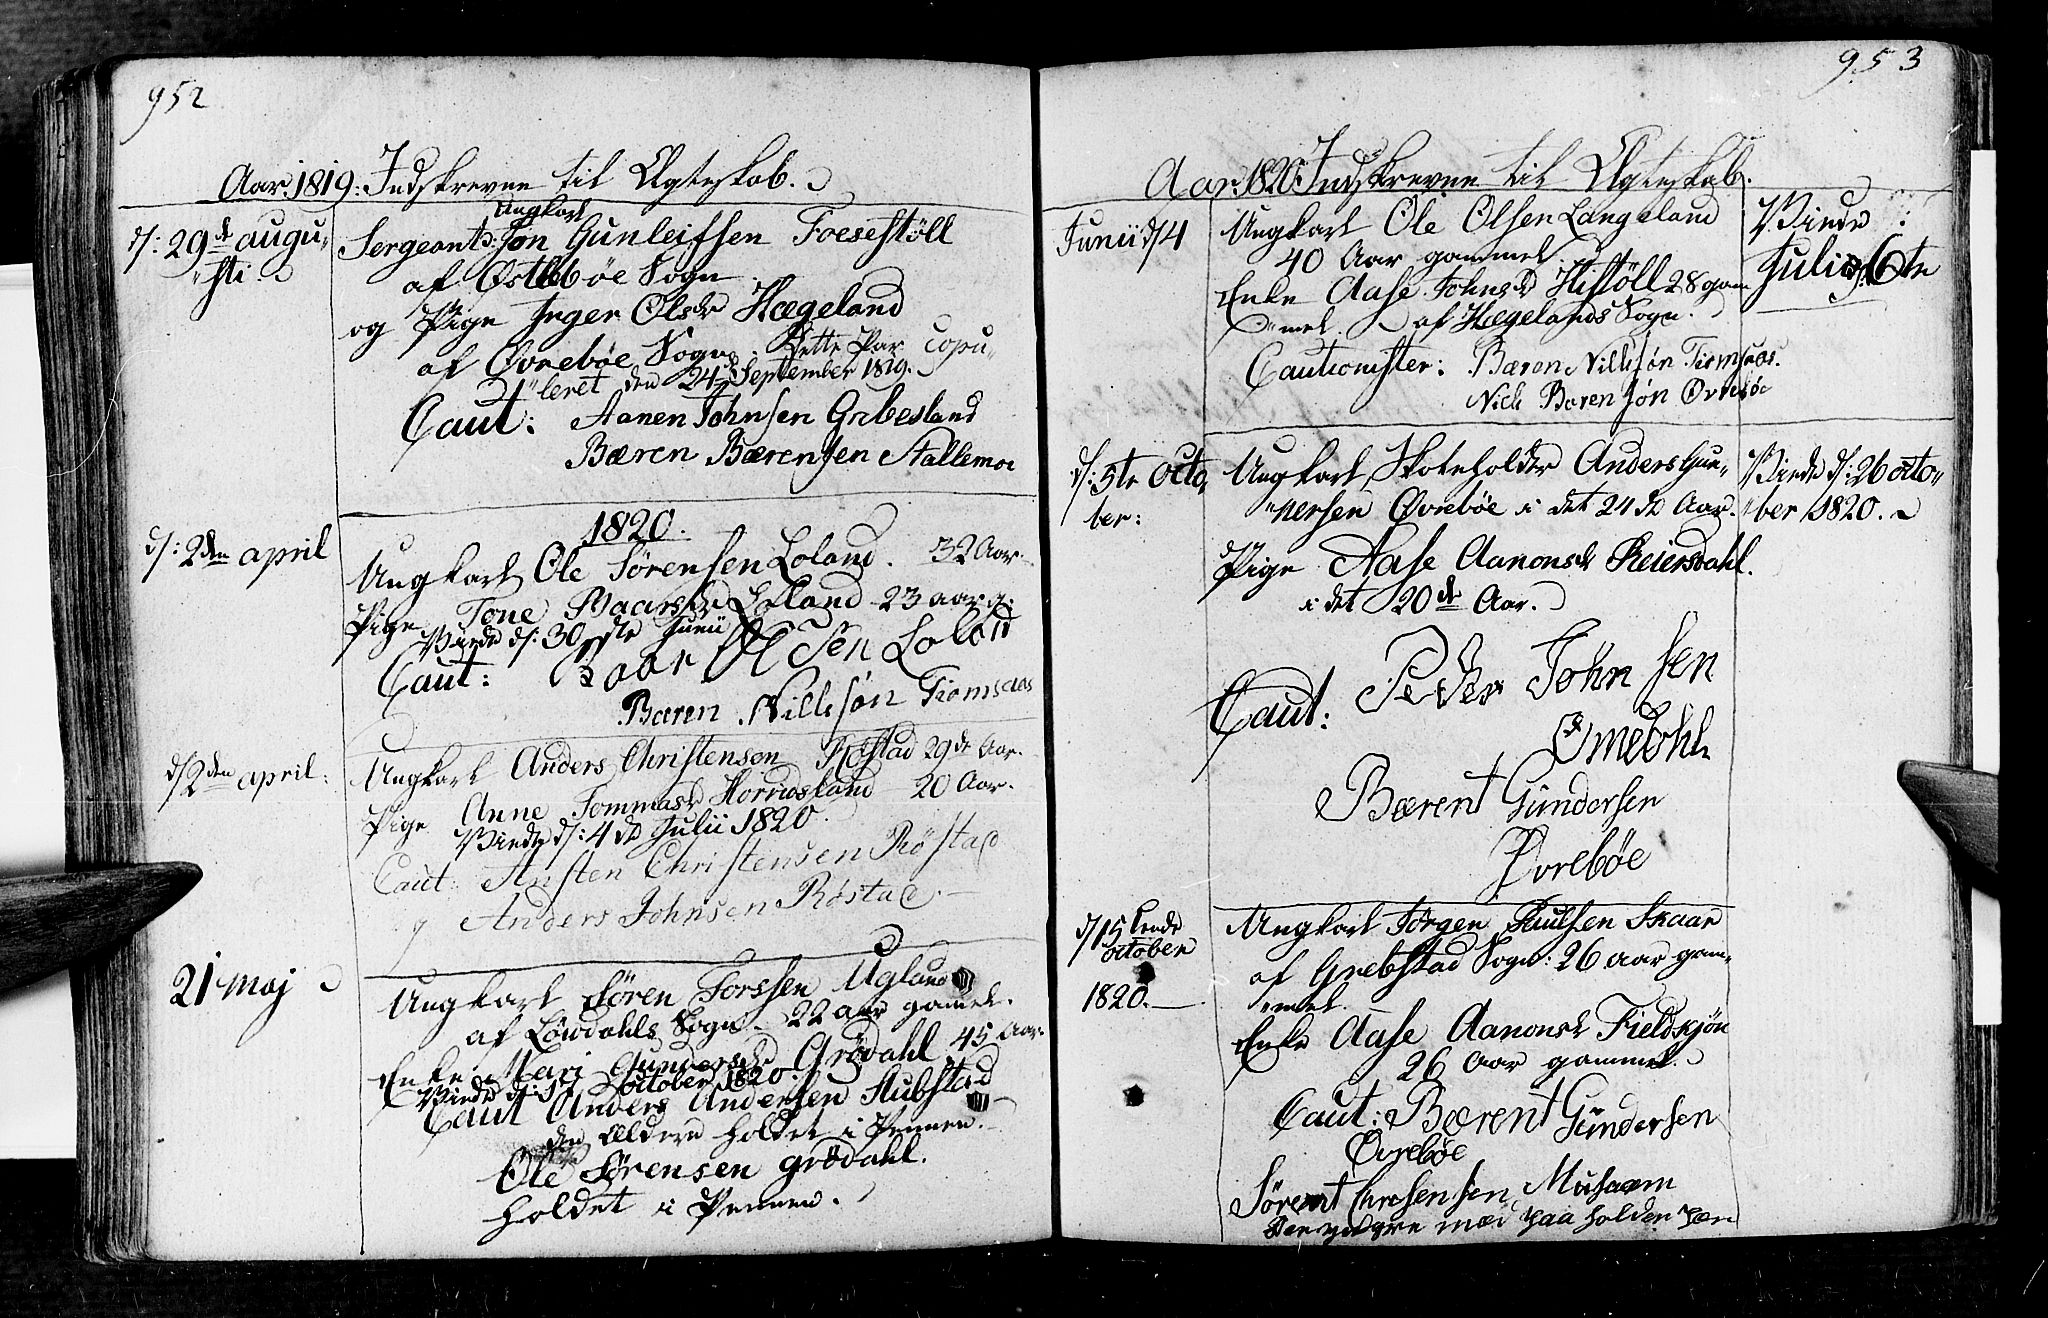 952
Aar 1819: Indskrevne til Ægteskab.
d: 29de augu-
sti.
Ungkarl
Sergeant: Jon Gunleifsen Foesestöll
af Østlebøe Sogn
og Pige Inger Olsdr Hægeland
af Øvrebøe Sogn. Dette Par copu-
leret den 24de September 1819.
Caut: Aanen Johnsen Grebesland
Bæren Bærensen Stallemoe
1820.
d: 2den april
Ungkarl Ole Sörensen Loland. 32 Aar.
Pige Tone Baarsdr Loland 23 aar g:
Viede d: 30te Junii
Caut: Baar Olsen Loland
Bæren Nillssøn Tiomsaas
d/2den april:
Ungkarl Anders Christensen Røstad 29de Aar.
Pige Anne Tommasdr Horrisland 20 Aar.
Viede d: 4de Julii 1820.
Caut: Austen Christensen Röstad
og Anders Johnsen Röstad.
21 maj
Ungkarl Sören Torssen Ugland
af Löwdahls Sogn. 22 aar gamel.
Enke Mari Gundersdr Grödahl 45 Aar.
Viede d: 17 october 1820.
Caut Anders Andersen Stubstad
den Ældere holdet i Pennen.
Ole Sörensen grödahl.
holdet i Pennen.
953
Aar 1820 Indskrevne til Ægteskab.
Junii d/4
Ungkarl Ole Olsen Langeland
40 Aar gammel.
Enke Aase Johnsdr Histöll 28 gam
mel. af Hægelands Sogn.
Viede
Julii d. 6te
Cautionister: Bæren Nillssøn Tiomsaas.
Nich Bæren søn Øvrebøe
d: 5te Octo-
ber:
Ungkarl Skoleholder Anders Gun-
nersen Øvrebøe i det 24de Aar.
Viede d: 26 octo-
ber 1820.
Pige Aase Aanonsdr Reiersdahl.
i det 20de Aar.
Caut: Peder Johnsen
Omdahl
Bærent Gundersen
Øvrebøe
d/15tende
october
1820.
Ungkarl Jörgen Paulsen Skaar
af Grebstad Sogn: 26 aar gam-
mel
Enke Aase Aanonsdr Fieldskjön
26 Aar gammel.
Caut: Bærent Gundersen
Øvrebøe
Sörent Chrestensen Mushaem